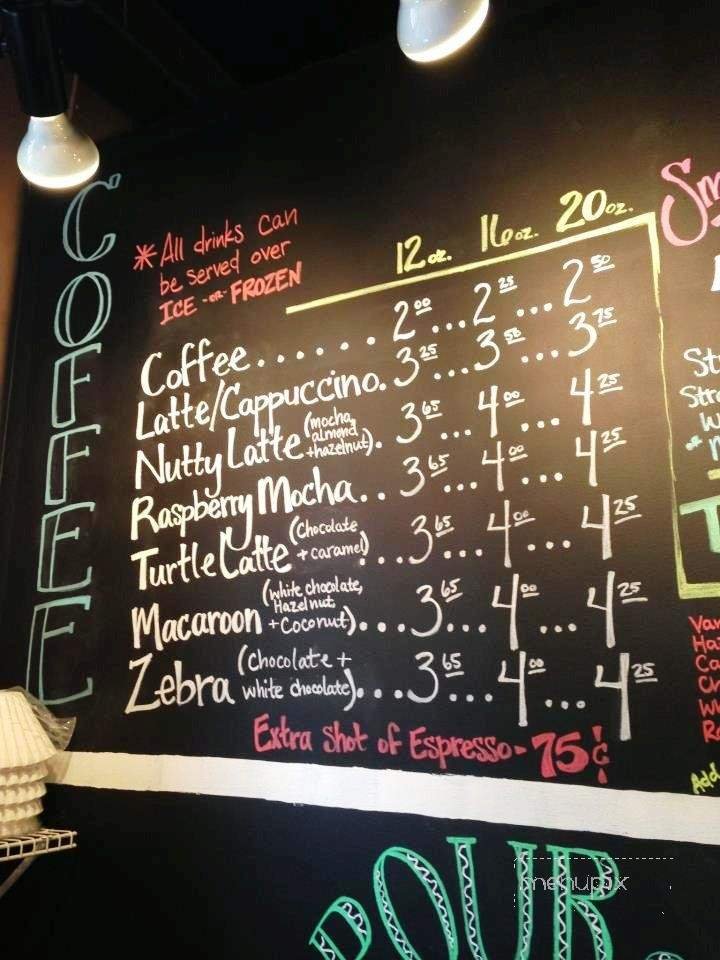 COFFEE
*All drinks can
be served over
ICE -or- FROZEN
12 oz. 16 oz. 20 oz.
Coffee....... 2.00...2.25...2.50
Latte/Cappuccino. 3.25...3.50...3.75
Nutty Latte (mocha, almond + hazelnut). 3.65...4.00...4.25
Raspberry Mocha.. 3.65...4.00...4.25
Turtle Latte (Chocolate + caramel)... 3.65...4.00...4.25
Macaroon (white chocolate, Hazelnut + Coconut)... 3.65...4.00...4.25
Zebra (chocolate + white chocolate)... 3.65...4.00...4.25
Extra shot of Espresso - 75¢
Add
POUR
menupix